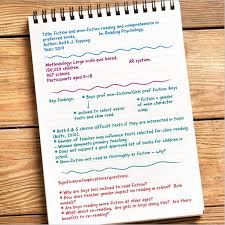 Title: Fiction and non-fiction reading and comprehension in
preferred books.
in. Reading Psychology.
Author: Keith J Topping
Year: 2015
Methodology: Large scale quiz based.
children. AR system.
schools.
Participants aged 5-18
Key findings:
Boys pref non-fiction/Girls pref fiction days
inclined to select easier
texts and skim read.
fiction =
main character
Both B & G choose difficult texts if they are interested in topic
Gender of teacher may influence texts selected for class reading
primary teaching.
Does not support a govt approved list of books for children
of each
Non-fiction not read as thoroughly as fiction - why?
Significance/implications/questions:
Why are boys less inclined to read fiction?
How does teacher gender impact on reading in school? Role
Are boys reading more fiction at older ages?
What about re-reading. Are girls or boys doing this? Are there
benefits to re-reading?